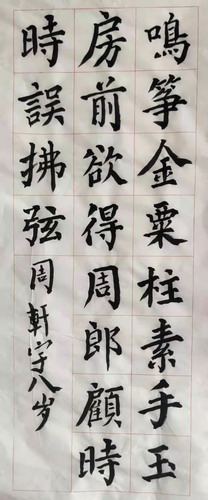 鳴箏金粟柱素手玉
房前欲得周郎顧時
時誤拂弦周軒宇八岁